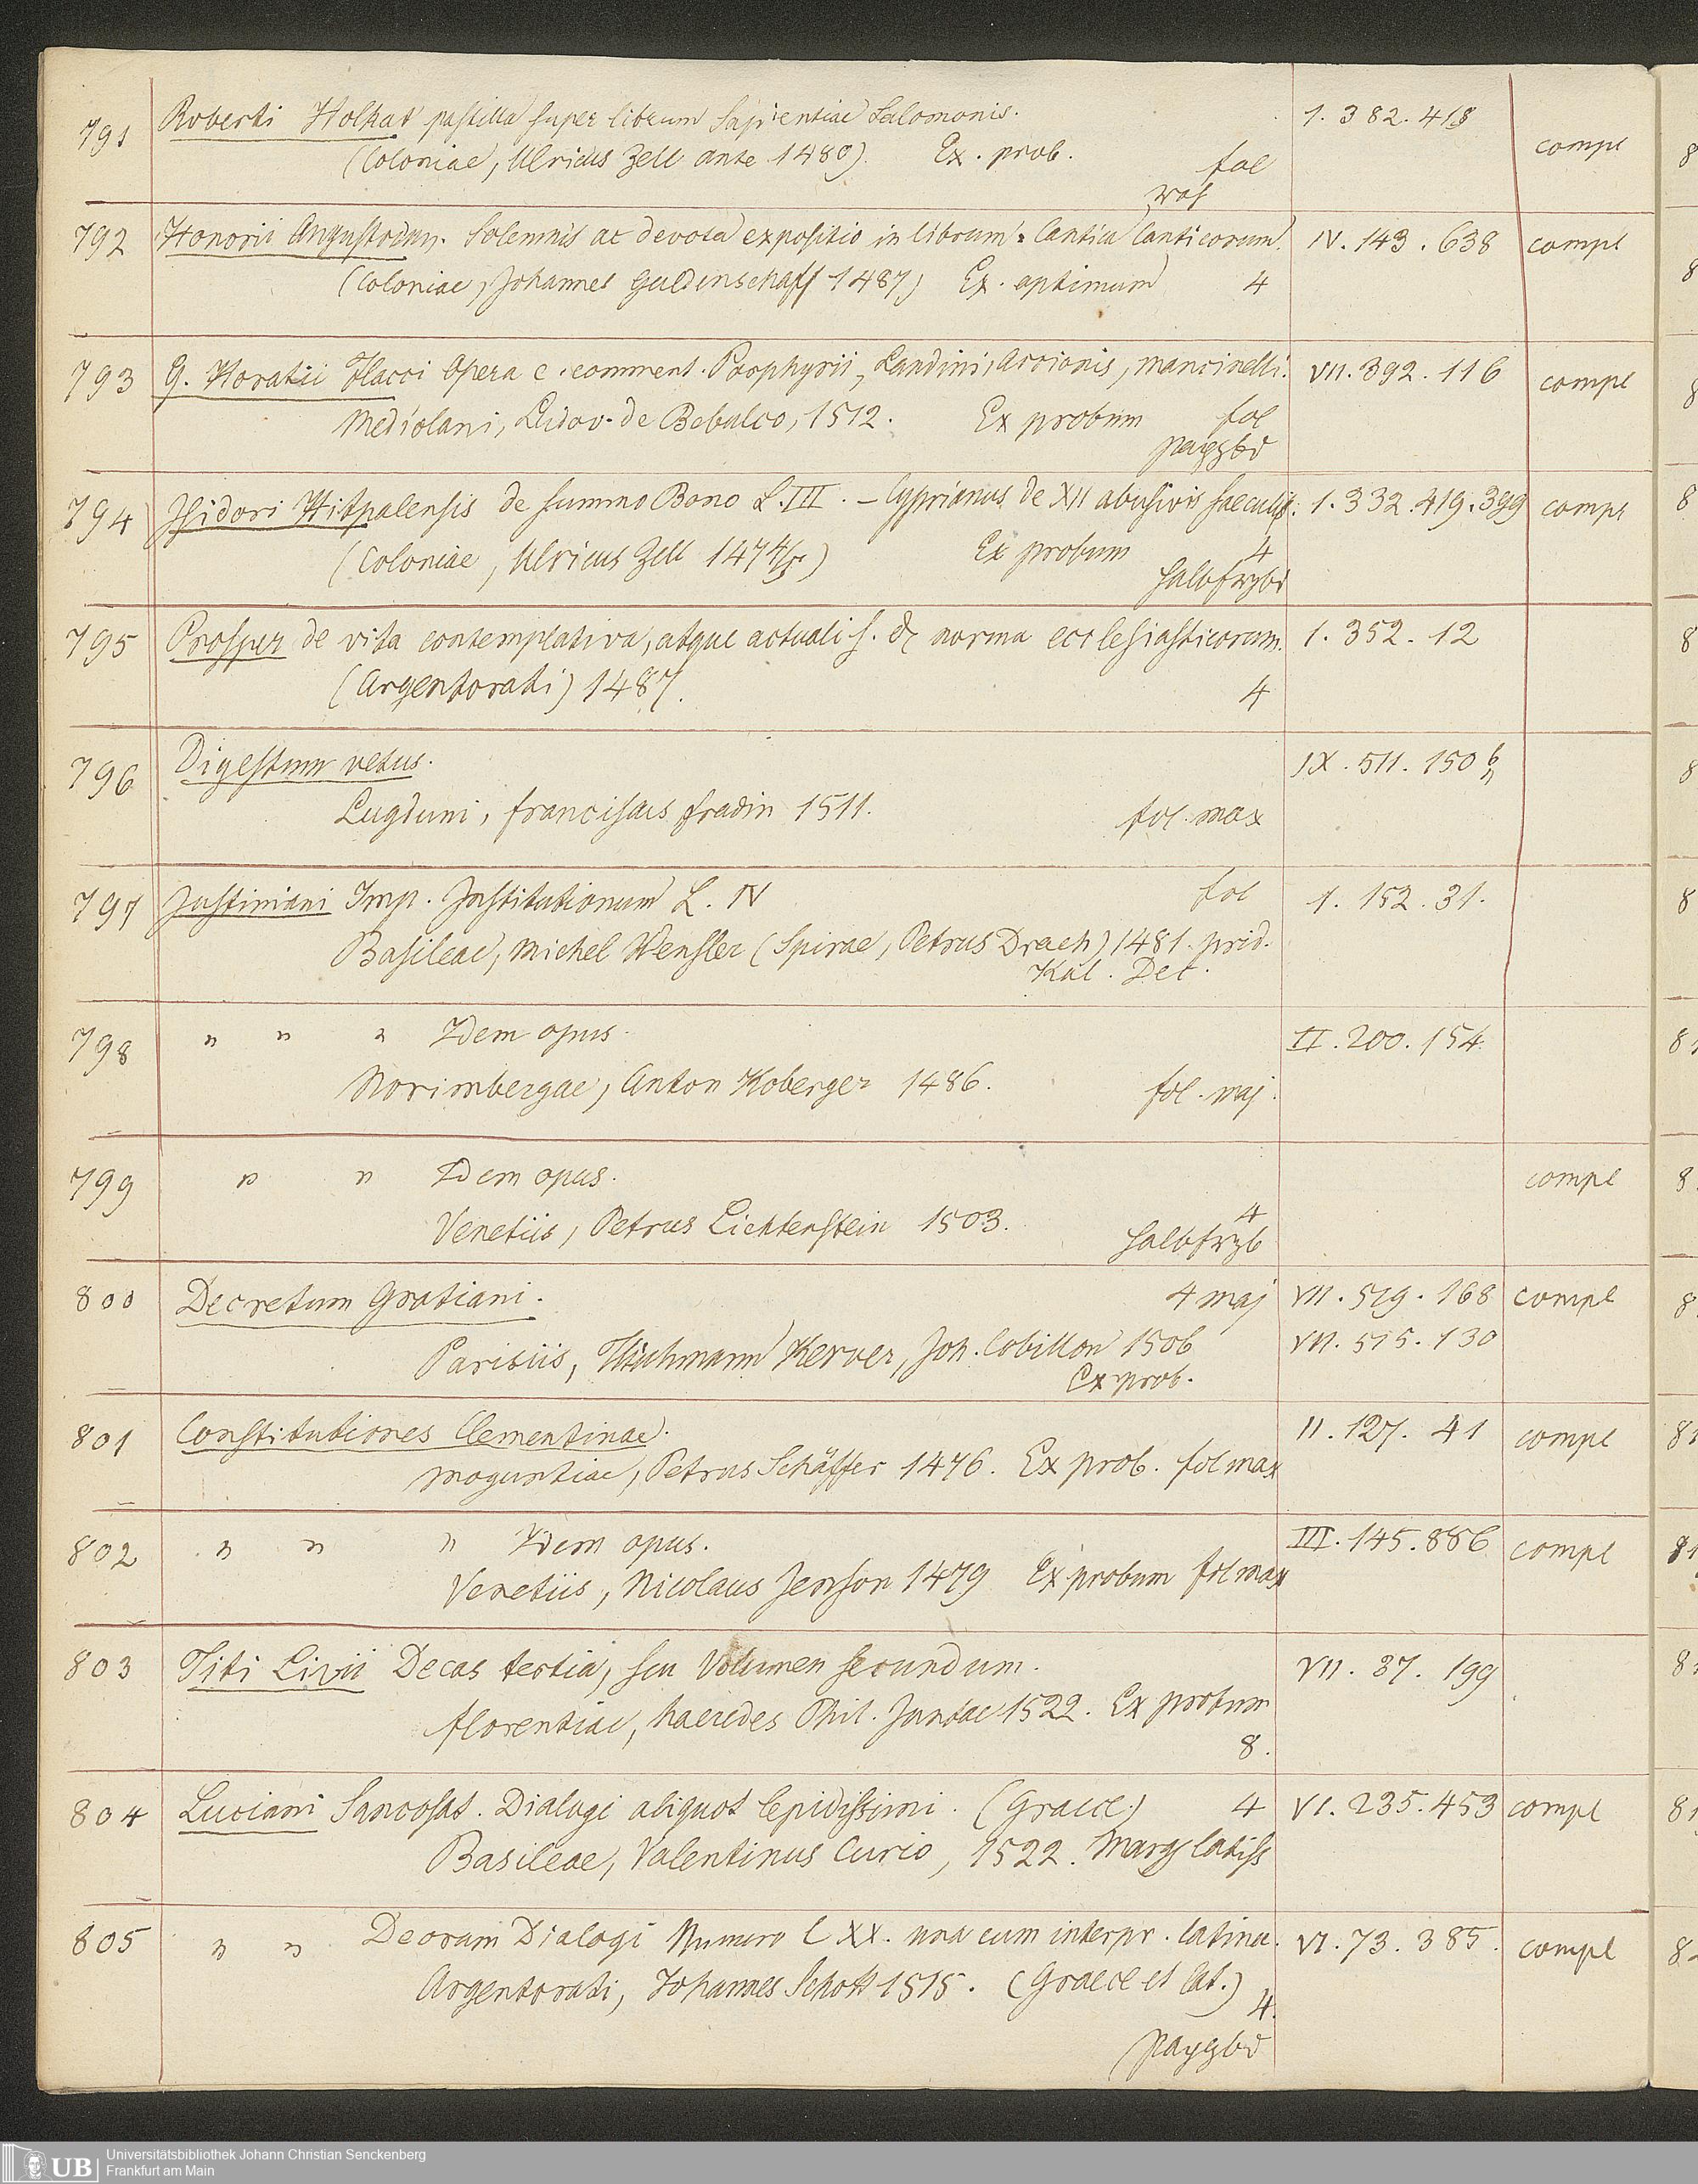 791 Roberti Holkat postilla super librum Sapientiae Salomonis. 1. 382. 418 compl
(Coloniae, Ulricus Zell ante 1480). Ex. prob. fol
792 Honorii Augustodun. Solemnis ac devota expositio in librum Cantica Canticorum. IV. 143. 638 compl
(Coloniae, Johannes Guldenschaff 1487) Ex. optimum 4
793 Q. Horatii Flacci Opera c. comment. Porphyrii, Landini, Acrionis, Mancinelli. VII. 392. 116 compl
Mediolani, Ludov. de Bebulco, 1512. Ex probum fol
pappbd
794 Isidori Hispalensis de summo Bono L. III. – Cyprianus de XII abusivis saeculis. 1. 332. 419. 399 compl
(Coloniae, Ulricus Zell 1474/5) Ex probum 4
halbfrzbd
795 Prosper de vita contemplativa, atque actuali s. de norma ecclesiasticorum. 1. 352. 12
(Argentorati) 1487. 4
796 Digestum vetus. IX. 511. 150 b
Lugduni, Franciscus Fradin 1511. fol. max
797 Justiniani Imp. Institutionum L. IV fol 1. 152. 31.
Basileae, Michel Wensler (Spirae, Petrus Drach) 1481. prid.
Kal. Dec.
798 " " " Idem opus. II. 200. 154.
Norimbergae, Anton Koberger 1486. fol. maj.
799 " " Idem opus. compl
Venetiis, Petrus Lichtenstein 1503. 4
halbfrzb
800 Decretum Gratiani. 4 maj VII. 519. 168 compl
Parisiis, Thielmann Kerver, Joh. Cobillon 1506 VII. 515. 130
Ex prob.
801 Constitutiones Clementinae. II. 127. 41 compl
Moguntiae, Petrus Schäffer 1476. Ex prob. fol max
802 " " " Idem opus. III. 145. 886 compl
Venetiis, Nicolaus Jenson 1479 Ex probum fol max
803 Titi Livii Decas tertia, seu Volumen secundum. VII. 37. 199
Florentiae, haeredes Phil. Juntae 1522. Ex probum
8.
804 Luciani Samosat. Dialogi aliquot lepidissimi. (Graece.) 4 VI. 235. 453 compl
Basileae, Valentinus Curio, 1522. Marg latiss
805 " " Deorum Dialogi Numero LXX. una cum interpr. latina. VI. 73. 385. compl
Argentorati, Johannes Schott 1515. (Graece et lat.) 4.
pappbd
UB Universitätsbibliothek Johann Christian Senckenberg
Frankfurt am Main